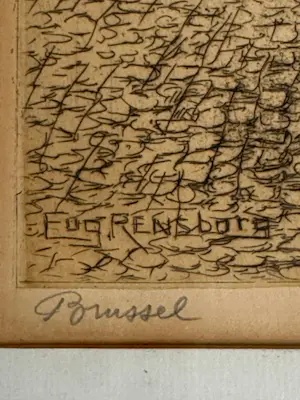 Eug RENsborg
Brussel